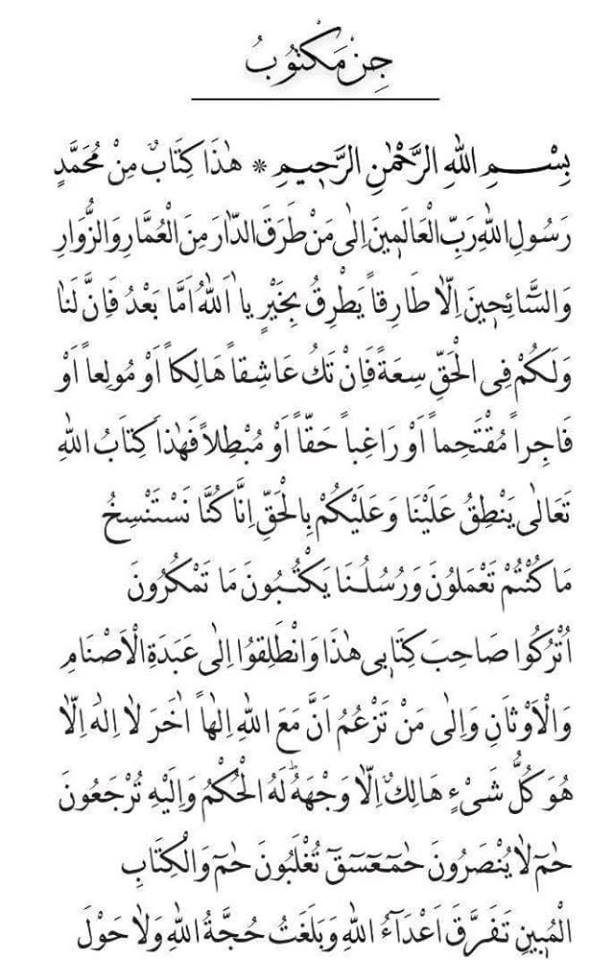 جِنْ مَكْتُوبُ
بِسْمِ اللهِ الرَّحْمٰنِ الرَّحٖيمِ * هٰذَا كِتَابٌ مِنْ مُحَمَّدٍ
رَسُولِ اللهِ رَبِّ الْعَالَمٖينَ اِلٰى مَنْ طَرَقَ الدَّارَ مِنَ الْعُمَّارِ وَالزُّوَّارِ
وَالسَّٓائِحٖينَ اِلَّا طَارِقاً يَطْرِقُ بِخَيْرٍ يَا اَللهُ اَمَّا بَعْدُ فَاِنَّ لَنَا
وَلَكُمْ فِى الْحَقِّ سِعَةً فَاِنْ تَكُ عَاشِقاً هَالِكاً اَوْ مُولِعاً اَوْ
فَاجِراً مُقْتَحِماً اَوْ رَاغِباً حَقّاً اَوْ مُبْطِلاً فَهٰذَا كِتَابُ اللهِ
تَعَالٰى يَنْطِقُ عَلَيْنَا وَعَلَيْكُمْ بِالْحَقِّ اِنَّا كُنَّا نَسْتَنْسِخُ
مَا كُنْتُمْ تَعْمَلُونَ وَرُسُلُنَا يَكْتُبُونَ مَا تَمْكُرُونَ
اُتْرُكُوا صَاحِبَ كِتَابٖى هٰذَا وَانْطَلِقُوا اِلٰى عَبَدَةِ الْاَصْنَامِ
وَالْاَوْثَانِ وَاِلٰى مَنْ تَزْعُمُ اَنَّ مَعَ اللهِ اِلٰهاً اٰخَرَ لَا اِلٰهَ اِلَّا
هُوَ كُلُّ شَیْءٍ هَالِكٌ اِلَّا وَجْهَهُ لَهُ الْحُكْمُ وَاِلَيْهِ تُرْجَعُونَ
حٰمٓ لَا يُنْصَرُونَ حٰمٓعٓسٓقٓ تُغْلَبُونَ حٰمٓ وَالْكِتَابِ
الْمُبٖينِ تَفَرَّقَ اَعْدَٓاءُ اللهِ وَبَلَغَتْ حُجَّةُ اللهِ وَلَا حَوْلَ